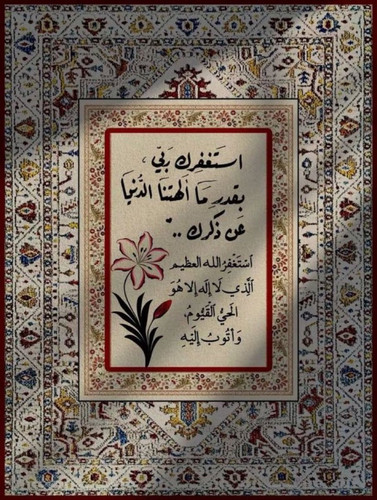 استغفرك ربي،
بقدر ما ألهتنا الدُنيا
عن ذكرك ..
أستغفرُ الله العظيم
الَّذِي لَا إِلٰه إلا هُوَ
الحَيُّ القَيُّومُ،
وَأتُوبُ إِلَيْهِ